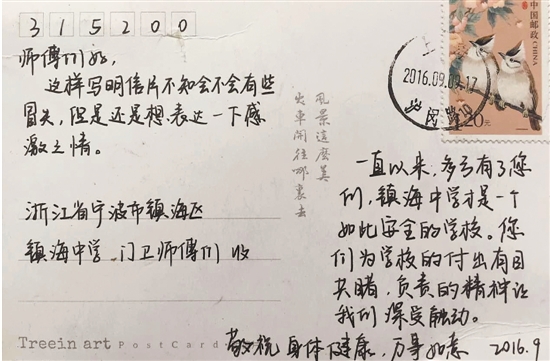 315200
师傅们好,
这样写明信片不知会不会有些
冒失,但是还是想表达一下感
激之情。
浙江省宁波市镇海区
镇海中学 门卫师傅们 收
Treein art PostCard
風景這麼美
火車開往哪裏去
中国邮政
CHINA
1.20元
2016.09.09.17
一直以来,多亏有了您
们,镇海中学才是一个
如此安全的学校。您
们为学校的付出有目
共睹,负责的精神让
我们深受触动。
敬祝 身体健康,万事如意
2016.9